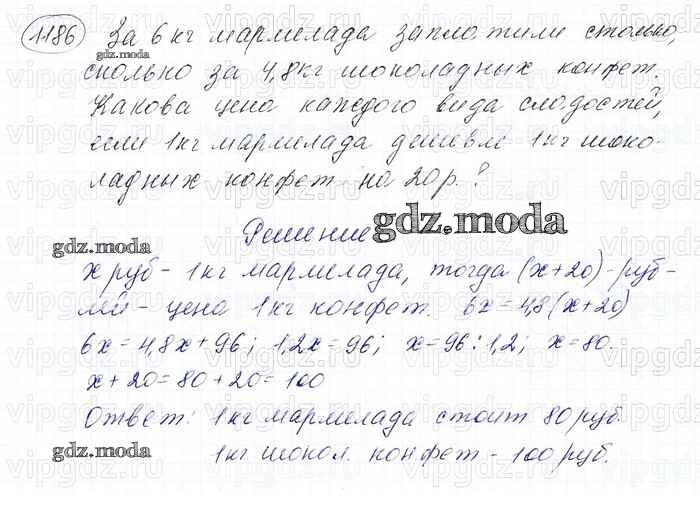 1186 За 6 кг мармелада заплатили столько,
gdz.moda
сколько за 4,8кг шоколадных конфет.
Какова цена каждого вида сладостей,
если 1кг мармелада дешевле 1кг шоко-
ладных конфет на 20р.?
gdz.moda
Решение
gdz.moda
х руб - 1кг мармелада, тогда (х+20)-руб-
ля - цена 1кг конфет. 6х=4,8(х+20)
6х=4,8х+96; 1,2х=96; х=96:1,2; х=80
х+20=80+20=100
Ответ: 1кг мармелада стоит 80руб.
gdz.moda
1кг шокол. конфет - 100руб.